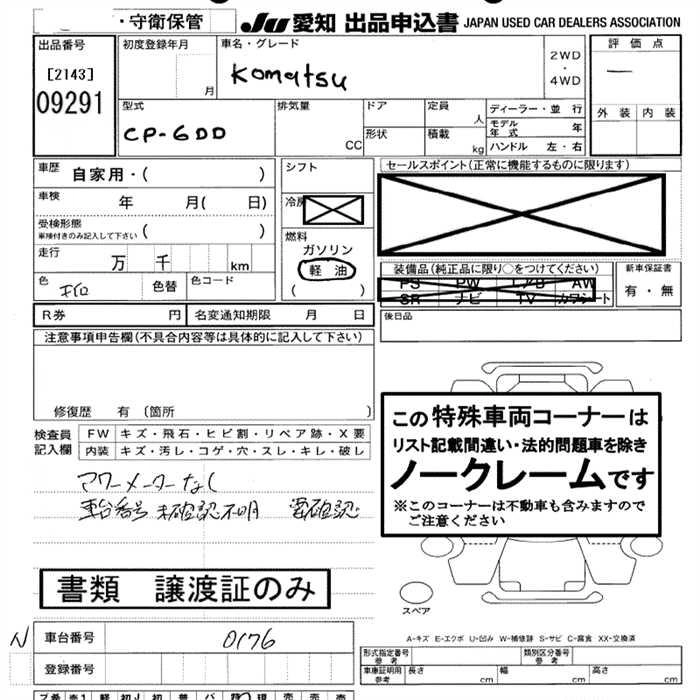 ・守衛保管 JU 愛知 出品申込書 JAPAN USED CAR DEALERS ASSOCIATION
出品番号 初度登録年月 車名・グレード 評価点
[2143] 月 Komatsu 2WD
・
4WD
—
09291 型式 排気量 ドア 定員 人 ディーラー・並 行 外装 内装
CP-6DD CC 形状 積載 kg モデル年式 年
ハンドル 左・右
車歴 自家用・( ) シフト セールスポイント(正常に機能するものに限ります)
車検 年 月( 日) 冷房
受検形態
車検付きのみ記入して下さい ( ) 燃料
ガソリン
走行 万 千 km 軽油 装備品(純正品に限り○をつけてください) 新車保証書
色 色替 色コード ( ) PS PW エアB AW 有・無
SR ナビ TV カワシート
R券 円 名変通知期限 月 日 後日品
注意事項申告欄(不具合内容等は具体的に記入して下さい)
修復歴 有 (箇所 )
検査員 FW キズ・飛石・ヒビ割・リペア跡・X要
記入欄 内装 キズ・汚レ・コゲ・穴・スレ・キレ・破レ
この特殊車両コーナーは
リスト記載間違い・法的問題車を除き
ノークレームです
※このコーナーは不動車も含みますので
ご注意ください
アワーメーターなし
車台番号 未確認不明 要確認
書類 譲渡証のみ
スペア
N 車台番号 0176
A-キズ E-エクボ U-凹み W-補修跡 S-サビ C-腐食 XX-交換済
登録番号
形式指定番号 参考 類別区分番号 参考
車庫証明用 参考 長さ cm 幅 cm 高さ cm